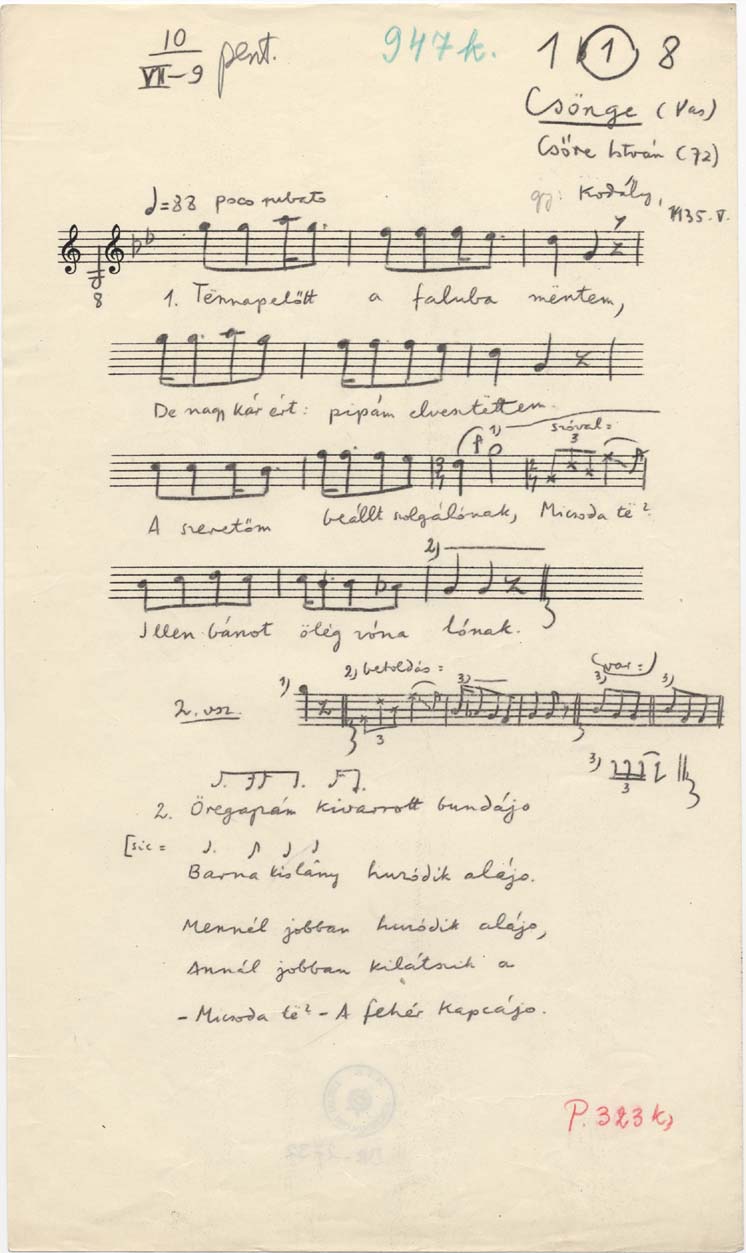 10
VII-9 pent.
947k.
1 1 8
Csönge (Vas)
Csőre István (72)
gy: Kodály,
1935. V.
♩=88 poco rubato
8
1. Tënnapelőtt a faluba mëntem,
De nagy kár ért: pipám elvesztëttem.
1) szóval=
3
3 4 2 4
A szeretőm beállt szolgálónak, Micsoda të?
2)
Illen bánot ölég vóna lónak.
2. vsz. 1) 2) betoldás= 3) (var=) 3) 3)
3
3)
3
2. Öregapám kivarrott bundájo
[sic=
Barna kislány huzódik alájo.
Mennél jobban huzódik alájo,
Annál jobban kilátszik a
- Micsoda të? - A fehér kapcájo.
P. 323 k,